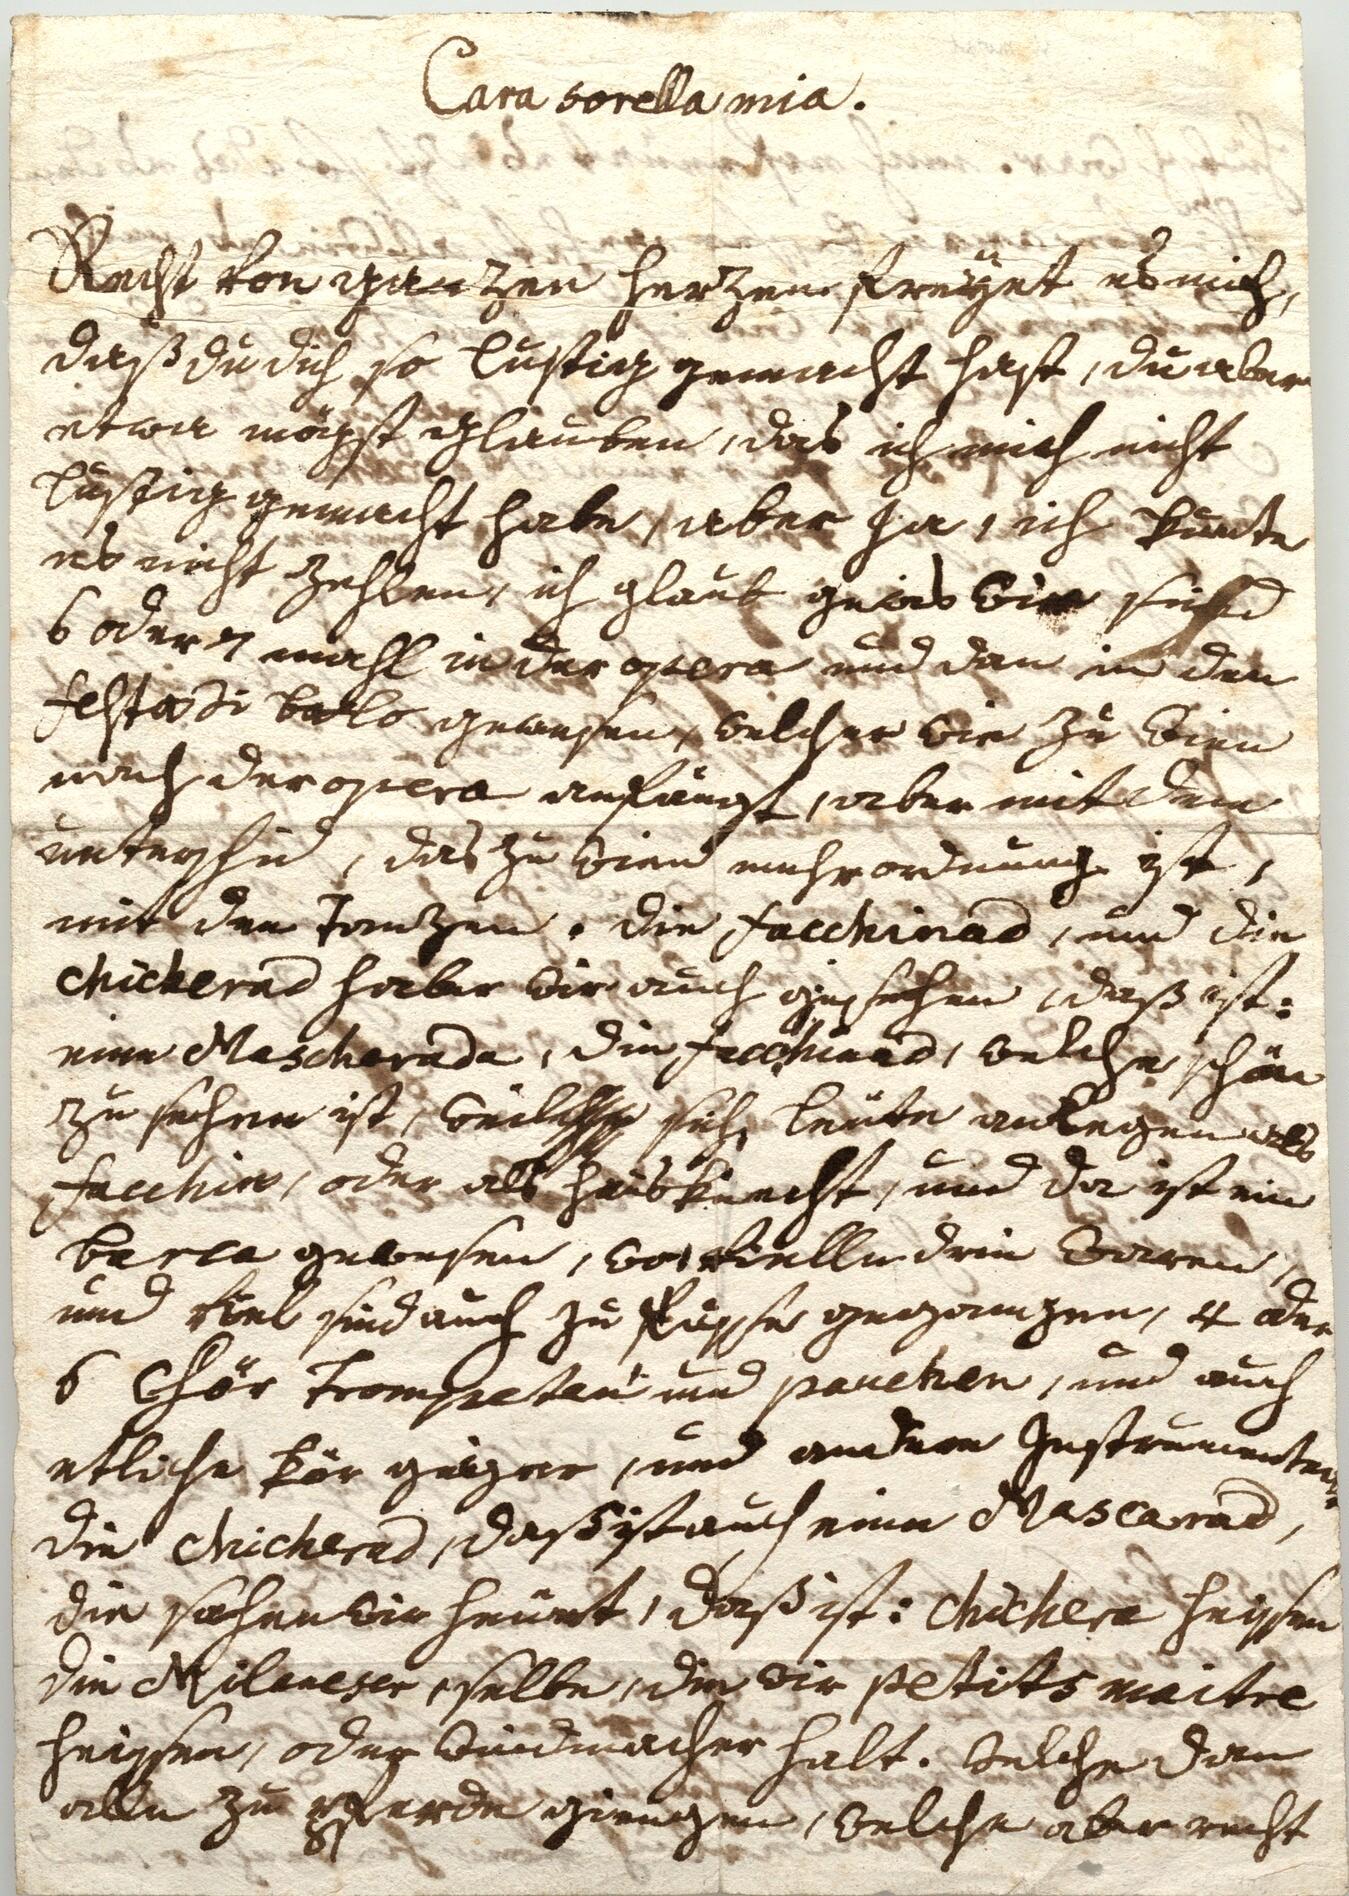 Cara sorella mia.
Recht von ganzen herzen freüet es mich,
daß du dich so lustig gemacht hast, du aber
etwa mögst glauben, das ich mich nicht
lustig gemacht habe, aber Ja, ich kunte
es nicht zehlen, ich glaub gewis wir sind
6 oder 7 mahl in der opera und dan in den
festa di ballo gewesen, welcher wie zu wien
nach der opera anfängt, aber mit dem
unterschid, das zu wien mehr ordnung ist,
mit den tantzen. die facchinad, und die
chicherad haben wir auch gesehen, daß ist:
eine Mascherada, die facchinad, welche schön
zu sehen ist, sich leüte anlegen als
facchin, oder als hausknecht, und da ist ein
barca gewesen, wo vielle drin waren,
und viel sind auch zu füesse gegangen, 4 oder
6 Chör trompeten und paucken, und auch
etliche kör geigen, und andere Instrumenten.
die chicherad, daß ist auch eine Mascarad,
die sahen wir heünt, daß ist: chichera heissen
die Milaneser, selbe, die wir petits maitre
heissen, oder windmacher halt. welche dan
alle zu pferde giengen, welche aber recht